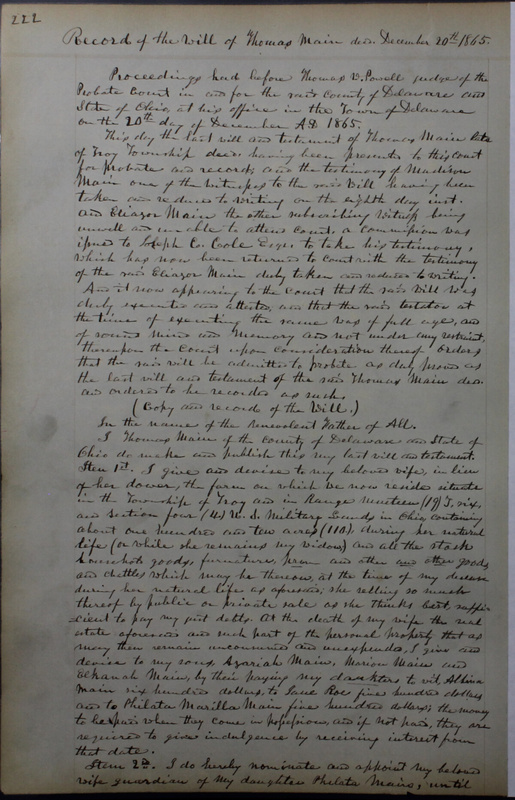 222
Record of the Will of Thomas Main decd. December 20th 1865.
Proceedings had before Thomas W. Powell judge of the
Probate Court in and for the said County of Delaware and
State of Ohio at his office in the Town of Delaware
on the 20th day of December A.D 1865.
This day the last will and testament of Thomas Main late
of Troy Township decd. having been presented to this Court
for probate and record, and the testimony of Madison
Main one of the witnesses to the said Will having been
taken and reduced to writing on the eighth day inst.
and Eleazor Main the other subscribing witness being
unwell and unable to attend Court, a commission was
issued to Joseph C. Cole Esqr. to take his testimony,
which has now been returned to Court with the testimony
of the said Eleazor Main duly taken and reduced to writing.
And it now appearing to the Court that the said Will was
duly executed and attested, and that the said testator at
the time of executing the same was of full age, and
of sound mind and memory and not under any restraint,
thereupon the Court upon consideration thereof orders
that the said will be admitted to probate as duly proved as
the last will and testament of the said Thomas Main decd.
and ordered to be recorded as such.
(Copy and record of the Will.)
In the name of the benevolent Father of All.
I Thomas Main of the County of Delaware and State of
Ohio do make and publish this my last will and testament.
Item 1st. I give and devise to my beloved wife, in lieu
of her dower, the farm on which we now reside situate
in the Township of Troy and in Range nineteen (19) T, six,
and section four (4) U. S. Military Lands in Ohio, containing
about one hundred and ten acres (110) during her natural
life (or while she remains my widow) and all the stock
household goods, furniture, and other and other goods
and chattles which may be thereon, at the time of my decease
during her natural life as aforesaid, she selling so much
thereof by public or private sale as she thinks best, suffi-
cient to pay my just debts. At the death of my wife the real
estate aforesaid and such part of the personal property that as
may then remain unconsumed and unexpended, I give and
devise to my sons, Azariah Main, Marion Main and
Elkanah Main, by their paying my daughters to wit, Albina
Main six hundred dollars, to Jane Roe five hundred dollars
and to Philata Marilla Main five hundred dollars; the money
to be paid when they come in possession, and if not paid, they are
required to give indulgence by receiving interest from
that date.
Item 2d. I do hereby nominate and appoint my beloved
wife guardian of my daughter Philata Main, until